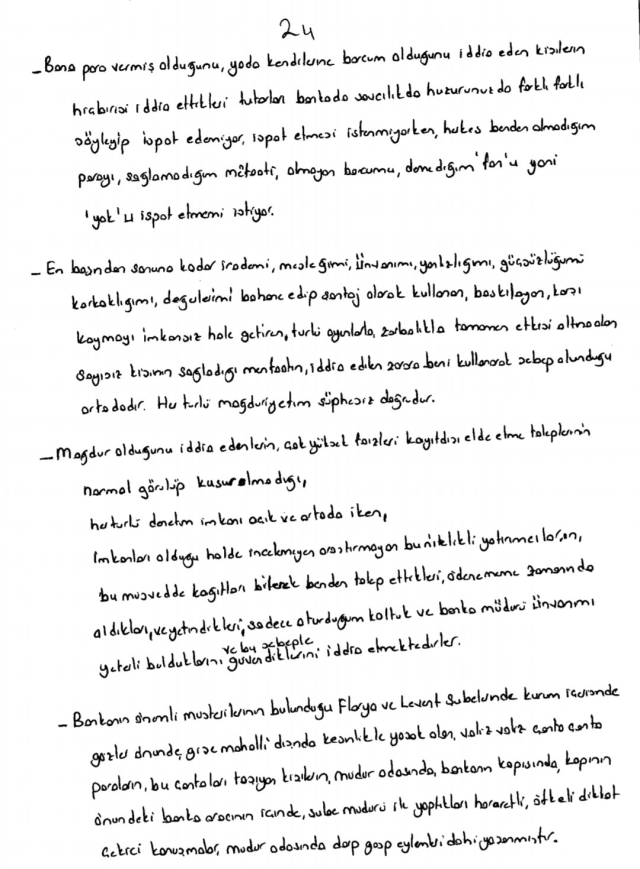 24
- Bana para vermiş olduğunu, yada kendilerine borcum olduğunu iddia eden kişilerin
hiçbirisi iddia ettikleri tutarları bankada savcılıkda huzurunuzda farklı farklı
söyleyip ispat edemiyor, ispat etmesi istenmiyorken, herkes benden almadığım
parayı, sağlamadığım mefaati, olmayan borcumu, denediğim 'fon'u yani
'yok'u ispat etmemi istiyor.
- En başından sonuna kadar irademi, mesleğimi, ünvanımı, yalnızlığımı, güçsüzlüğümü
korkaklığımı, değerlerimi bahane edip şantaj olarak kullanan, baskılayan, karşı
koymayı imkansız hale getiren, türlü oyunlarla, zorbalıkla tamamen etkisi altına alan
sayısız kişinin sağladığı menfaatin, iddia edilen zarara beni kullanarak sebep olunduğu
ortadadır. Her türlü mağduriyetim şüphesiz doğrudur.
- Mağdur olduğunu iddia edenlerin, çok yüksek faizleri kayıtdışı elde etme taleplerinin
normal görülüp kusur olmadığı,
her türlü denetim imkanı açık ve ortada iken,
imkanları olduğu halde incelemeyen araştırmayan bu nitelikli yatırımcıların,
bu müsvedde kağıtları bilerek benden talep ettikleri, ödenmeme zamanında
aldıkları, ve yetindikleri, sadece oturduğum koltuk ve banka müdürü ünvanımı
yeterli bulduklarını ve bu sebeple güvendiklerini iddia etmektedirler.
- Bankanın önemli müşterilerinin bulunduğu Florya ve Levent Şubelerinde kurum içerisinde
gözler önünde, gişe mahalli dışında kesinlikle yasak olan, valiz valiz çanta çanta
paraların, bu çantaları taşıyan kişilerin, müdür odasında, bankanın kapısında, kapının
önündeki banka aracının içinde, şube müdürü ile yaptıkları hararetli, öfkeli dikkat
çekici konuşmalar, müdür odasında darp gasp eylemleri dahi yaşanmıştır.